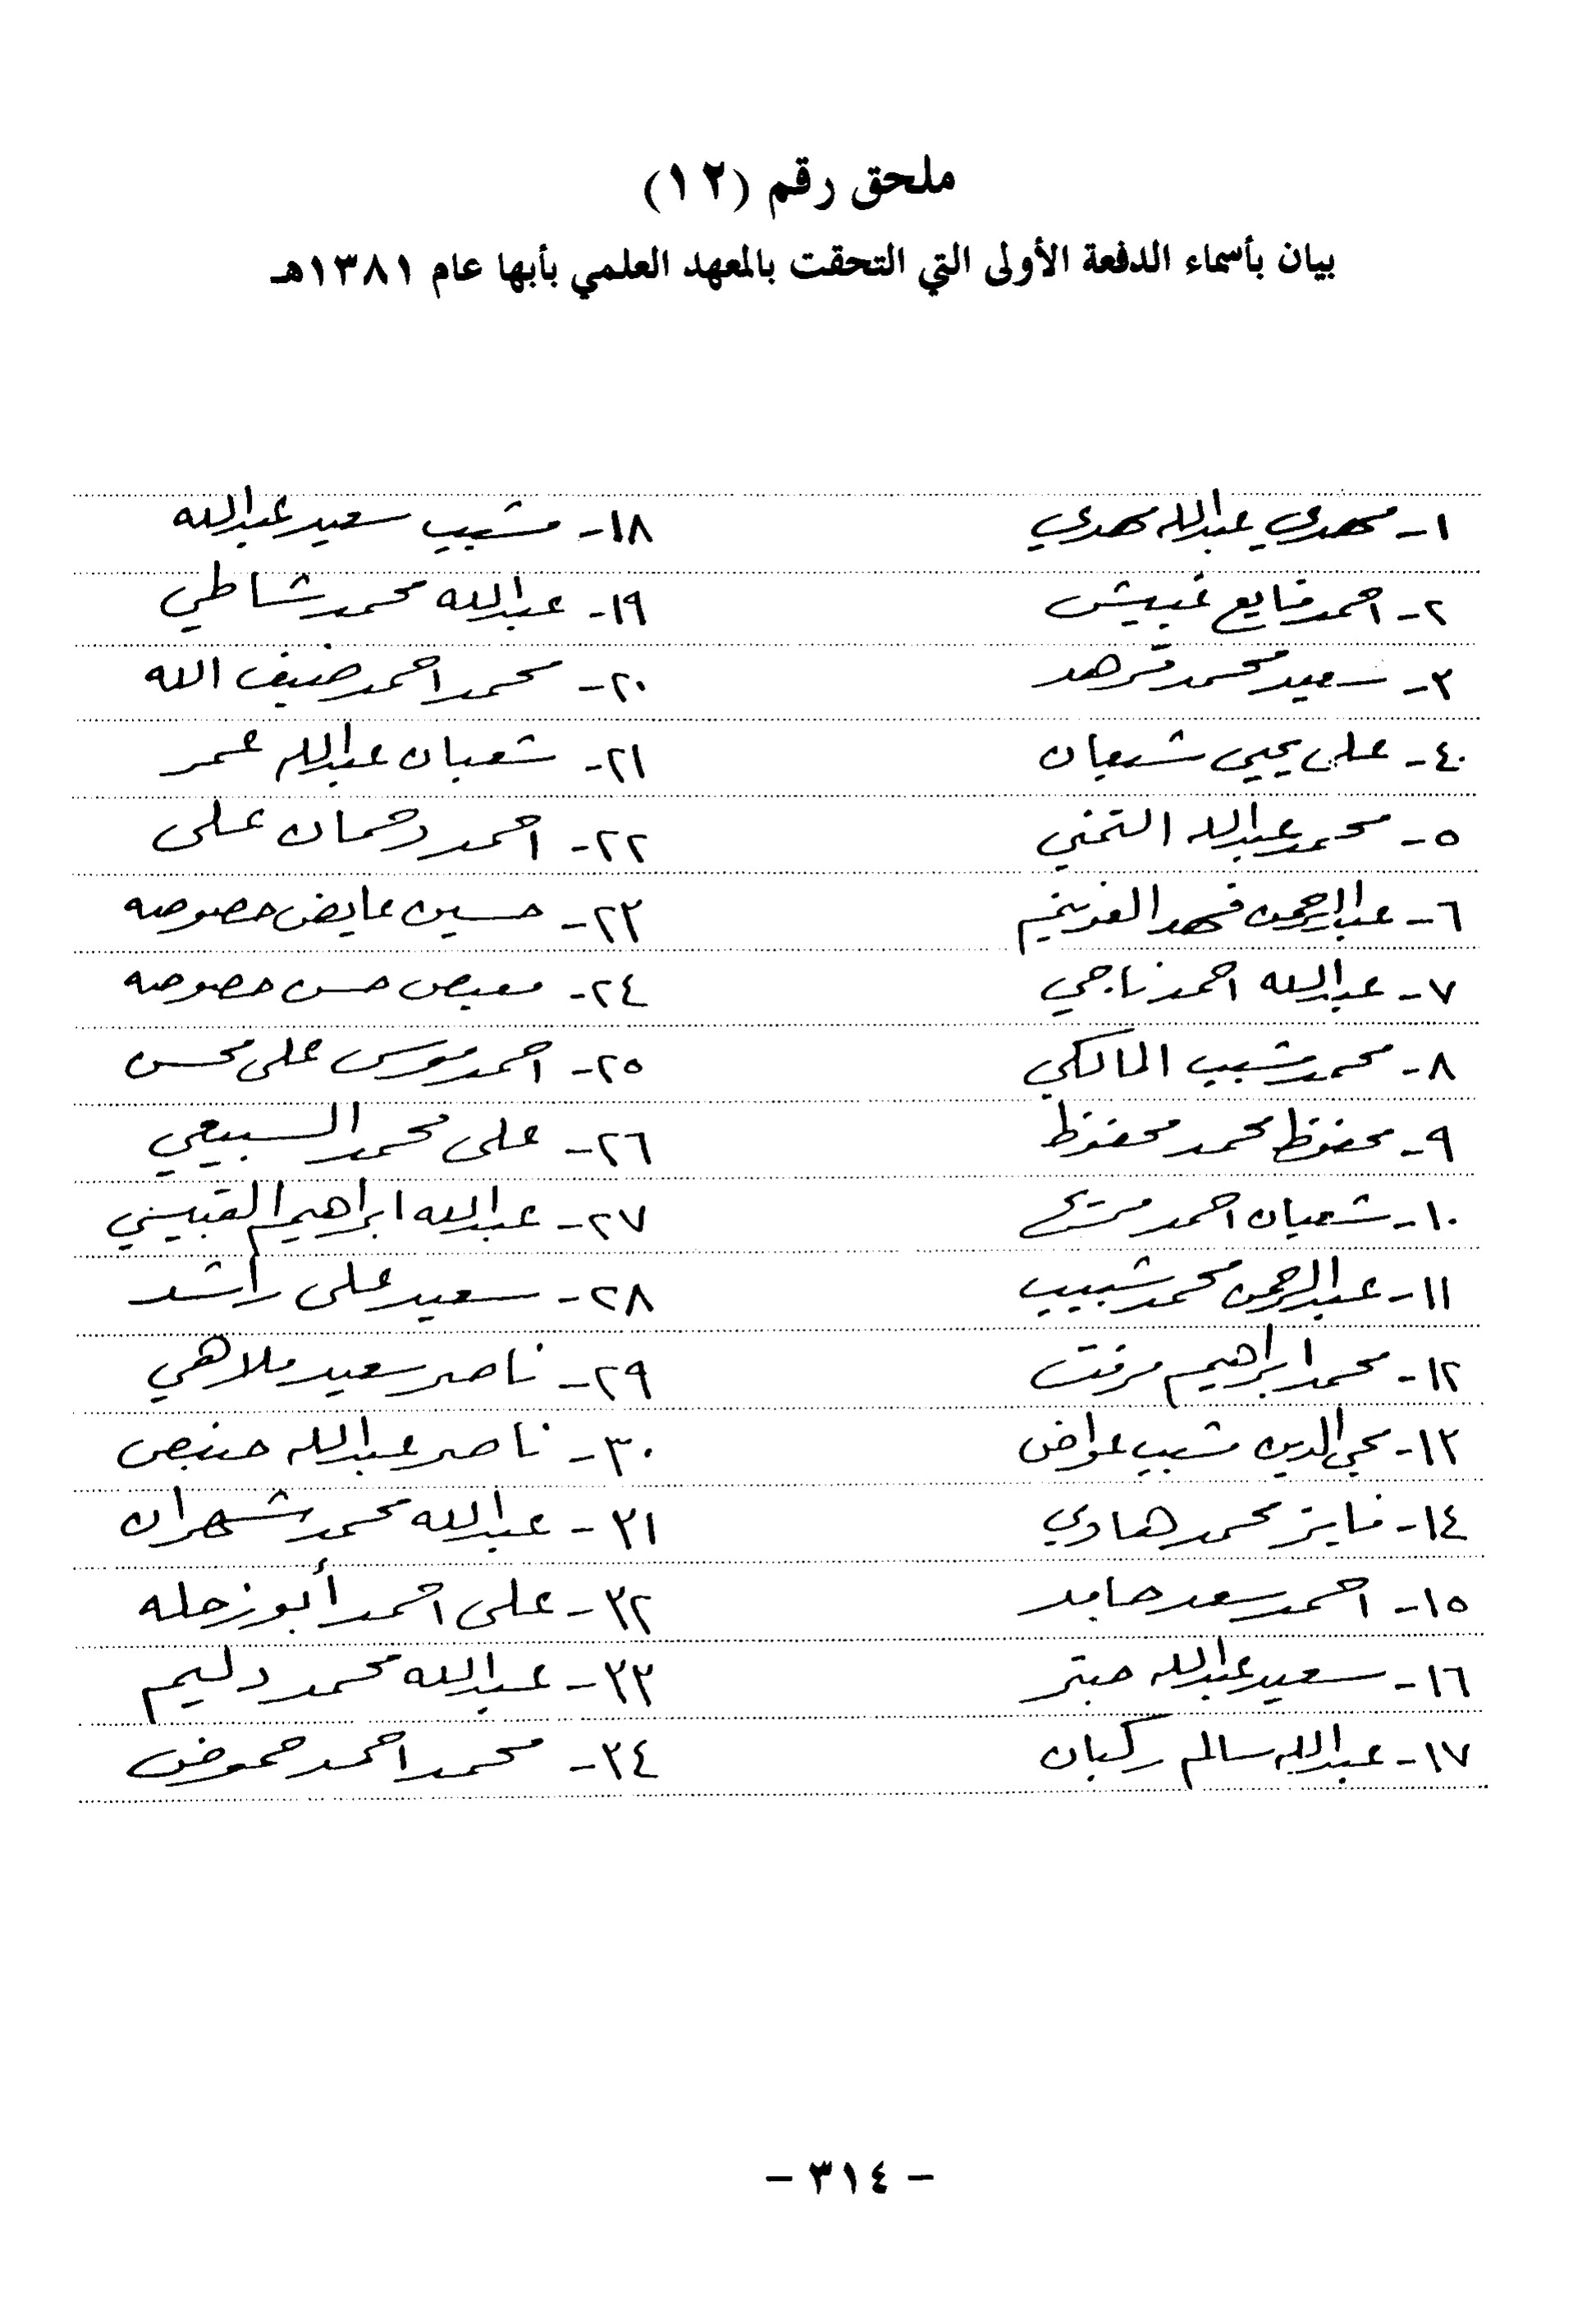 ملحق رقم (١٢)
بيان بأسماء الدفعة الأولى التي التحقت بالمعهد العلمي بأبها عام ١٣٨١هـ
١- مهدي عبدالله مهدي
٢- احمد فايع غبيش
٣- سعيد محمد
٤- على يحيى شعبان
٥- محمد عبدالله التمني
٦- عبدالرحمن فهد
٧- عبدالله احمد ناجي
٨- محمد مشبب المالكي
٩- محفوظ محمد محفوظ
١٠- شعبان احمد مريح
١١- عبدالرحمن محمد شبيب
١٢- محمد ابراهيم
١٣- محي الدين مشبب عواض
١٤- فايز محمد هادي
١٥- احمد سعد حامد
١٦- سعيد عبدالله
١٧- عبدالله سالم ركبان
١٨- مشبب سعيد عبدالله
١٩- عبدالله محمد شاطي
٢٠- محمد احمد ضيف الله
٢١- شعبان عبدالله عمر
٢٢- احمد دحمان على
٢٣- حسين عايض حصوصه
٢٤- معيض حسن حصوصه
٢٥- احمد موسى على محسن
٢٦- على محمد السبيعي
٢٧- عبدالله ابراهيم القبيسي
٢٨- سعيد على راشد
٢٩- ناصر سعيد ملاهي
٣٠- ناصر عبدالله
٣١- عبدالله محمد شهران
٣٢- على احمد أبو زحله
٣٣- عبدالله محمد دليم
٣٤- محمد احمد حموض
- ٣١٤ -